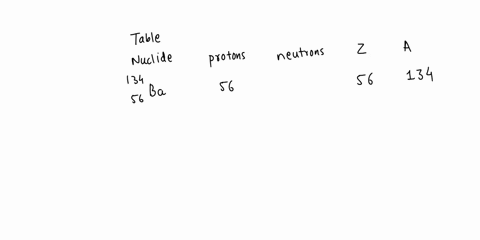 Table
Nuclide protons neutrons Z A
134
56 Ba 56 56 134